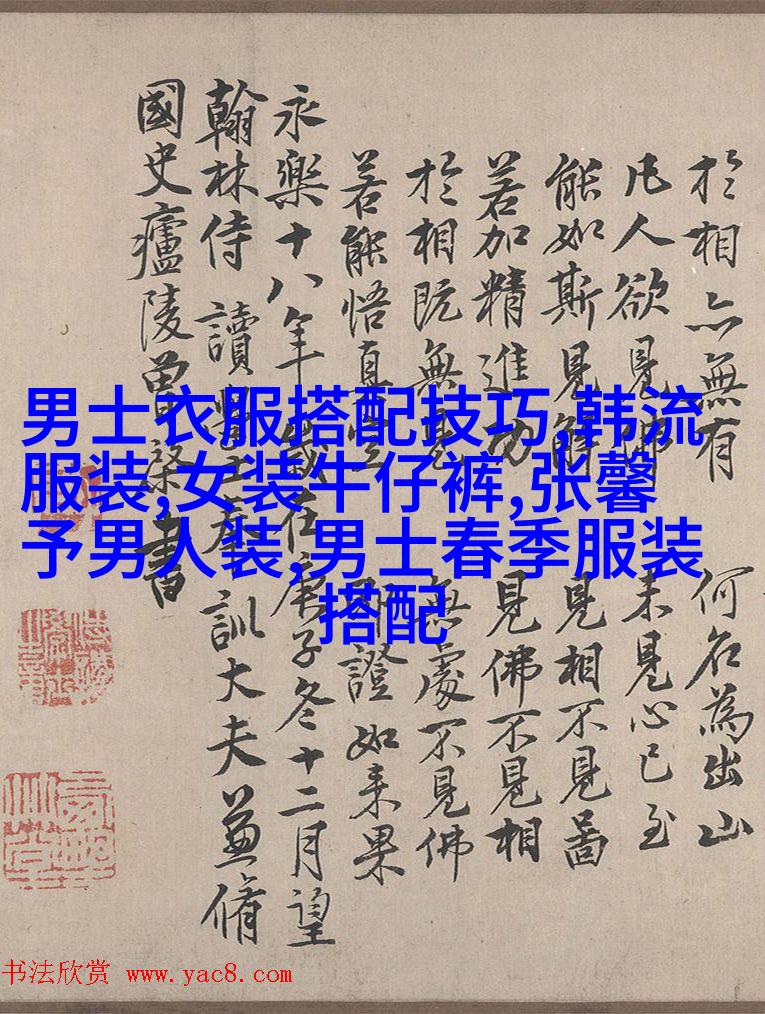 於相亦無有 何名為出山
凡人欲見佛 未見心已至
能如斯見解 見相不見啚
若加精進功 見佛不見相
於相既無見 無處不見佛
若能悟真空 即證如来果
永樂十八年歲在庚子冬十二月望
翰林侍讀學士奉訓大夫兼脩
國史廬陵曽棨書
男士衣服搭配技巧,韩流
服装,女装牛仔裤,张馨
予男人装,男士春季服装
搭配
书法欣赏 www.yac8.com